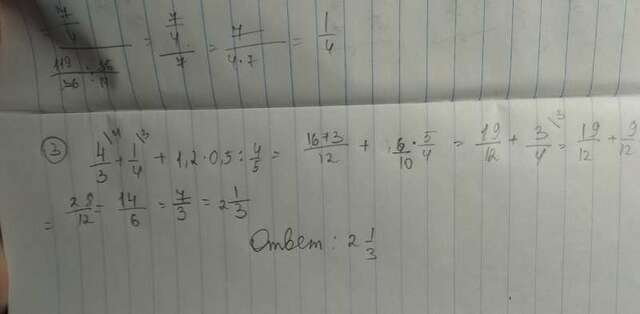 = 7/4 / 119/36 : 36/17 = 7/4 / 7 = 7/4·7 = 1/4
③ 4/3\4 + 1/4\3 + 1,2·0,5 : 4/5 = 16+3/12 + 6/10 · 5/4 = 19/12 + 3/4\3 = 19/12 + 9/12
= 28/12 = 14/6 = 7/3 = 2 1/3
Ответ: 2 1/3